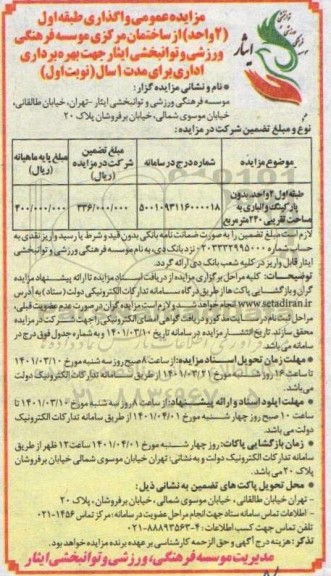 مزایده عمومی واگذاری طبقه اول
(۲ واحد) از ساختمان مرکزی موسسه فرهنگی
ورزشی و توانبخشی ایثار جهت بهره برداری
اداری برای مدت ۱ سال (نوبت اول)
ایثار
• نام و نشانی مزایده گزار:
موسسه فرهنگی ورزشی و توانبخشی ایثار -تهران، خیابان طالقانی،
خیابان موسوی شمالی، خیابان برفروشان پلاک ۲۰
نوع و مبلغ تضمین شرکت در مزایده:
موضوع مزایده
شماره درج در سامانه
مبلغ تضمین شرکت در مزایده (ریال)
مبلغ پایه ماهیانه (ریال)
طبقه اول ۲ واحد، بدون پارکینگ و انباری به مساحت تقریبی ۲۴۰ متر مربع
۵۰۰۱۰۹۳۱۱۶۰۰۰۰۱۸
۳۳۶/۰۰۰/۰۰۰
۴۰۰/۰۰۰/۰۰۰
لازم است مبلغ تضمین را به صورت ضمانت نامه بانکی بدون قید و شرط یا رسید واریز نقدی به
حساب شماره ۰۲۰۳۳۳۲۹۹۵۰۰۰ نزد بانک دی، به نام موسسه فرهنگی ورزشی و توانبخشی
ایثار قابل واریز در کلیه شعب بانک دی ارائه گردد.
توضیحات: کلیه مراحل برگزاری مزایده از دریافت اسناد مزایده تا ارائه پیشنهاد مزایده
گران و بازگشایی پاکت ها از طریق درگاه سامانه تدارکات الکترونیکی دولت (ستاد) به آدرس
www.setadiran.ir انجام خواهد شد و لازم است مزایده گران در صورت عدم عضویت قبلی،
مراحل ثبت نام در سایت مذکور و دریافت گواهی امضای الکترونیکی را جهت شرکت در مزایده
محقق سازند. تاریخ انتشار مزایده در سامانه تاریخ ۱۴۰۱/۰۳/۱۰ و به شماره جدول فوق درج در
سامانه می باشد.
• مهلت زمان تحویل اسناد مزایده: از ساعت ۸ صبح روز سه شنبه مورخ ۱۴۰۱/۰۳/۱۰
تا ساعت ۱۶ روز شنبه مورخ ۱۴۰۱/۰۳/۲۱ از طریق سامانه تدارکات الکترونیک دولت
می باشد.
• مهلت آپلود اسناد و ارائه پیشنهاد: از ساعت ۸ روز سه شنبه مورخ ۱۴۰۱/۰۳/۱۰ تا
ساعت ۱۰ صبح روز چهار شنبه مورخ ۱۴۰۱/۰۴/۰۱ از طریق سامانه تدارکات الکترونیک
دولت می باشد.
• زمان بازگشایی پاکات: روز چهار شنبه مورخ ۱۴۰۱/۰۴/۰۱ ساعت ۱۲ ظهر از طریق
سامانه تدارکات الکترونیک دولت و به نشانی: تهران خیابان موسوی شمالی خیابان برفروشان
پلاک ۲۰ می باشد.
• محل تحویل پاکت های تضمین به نشانی ذیل:
- تهران خیابان طالقانی، خیابان موسوی شمالی، خیابان برفروشان، پلاک ۲۰
- اطلاعات تماس سامانه ستاد جهت انجام مراحل عضویت در سامانه: مرکز تماس ۱۴۵۶-۰۲۱
تلفن تماس جهت کسب اطلاعات: ۴-۸۸۸۹۳۵۶۳-۰۲۱
تذکر: هزینه درج آگهی و حق الزحمه کارشناسی بر عهده برنده مزایده خواهد بود.
مدیریت موسسه فرهنگی، ورزشی و توانبخشی ایثار